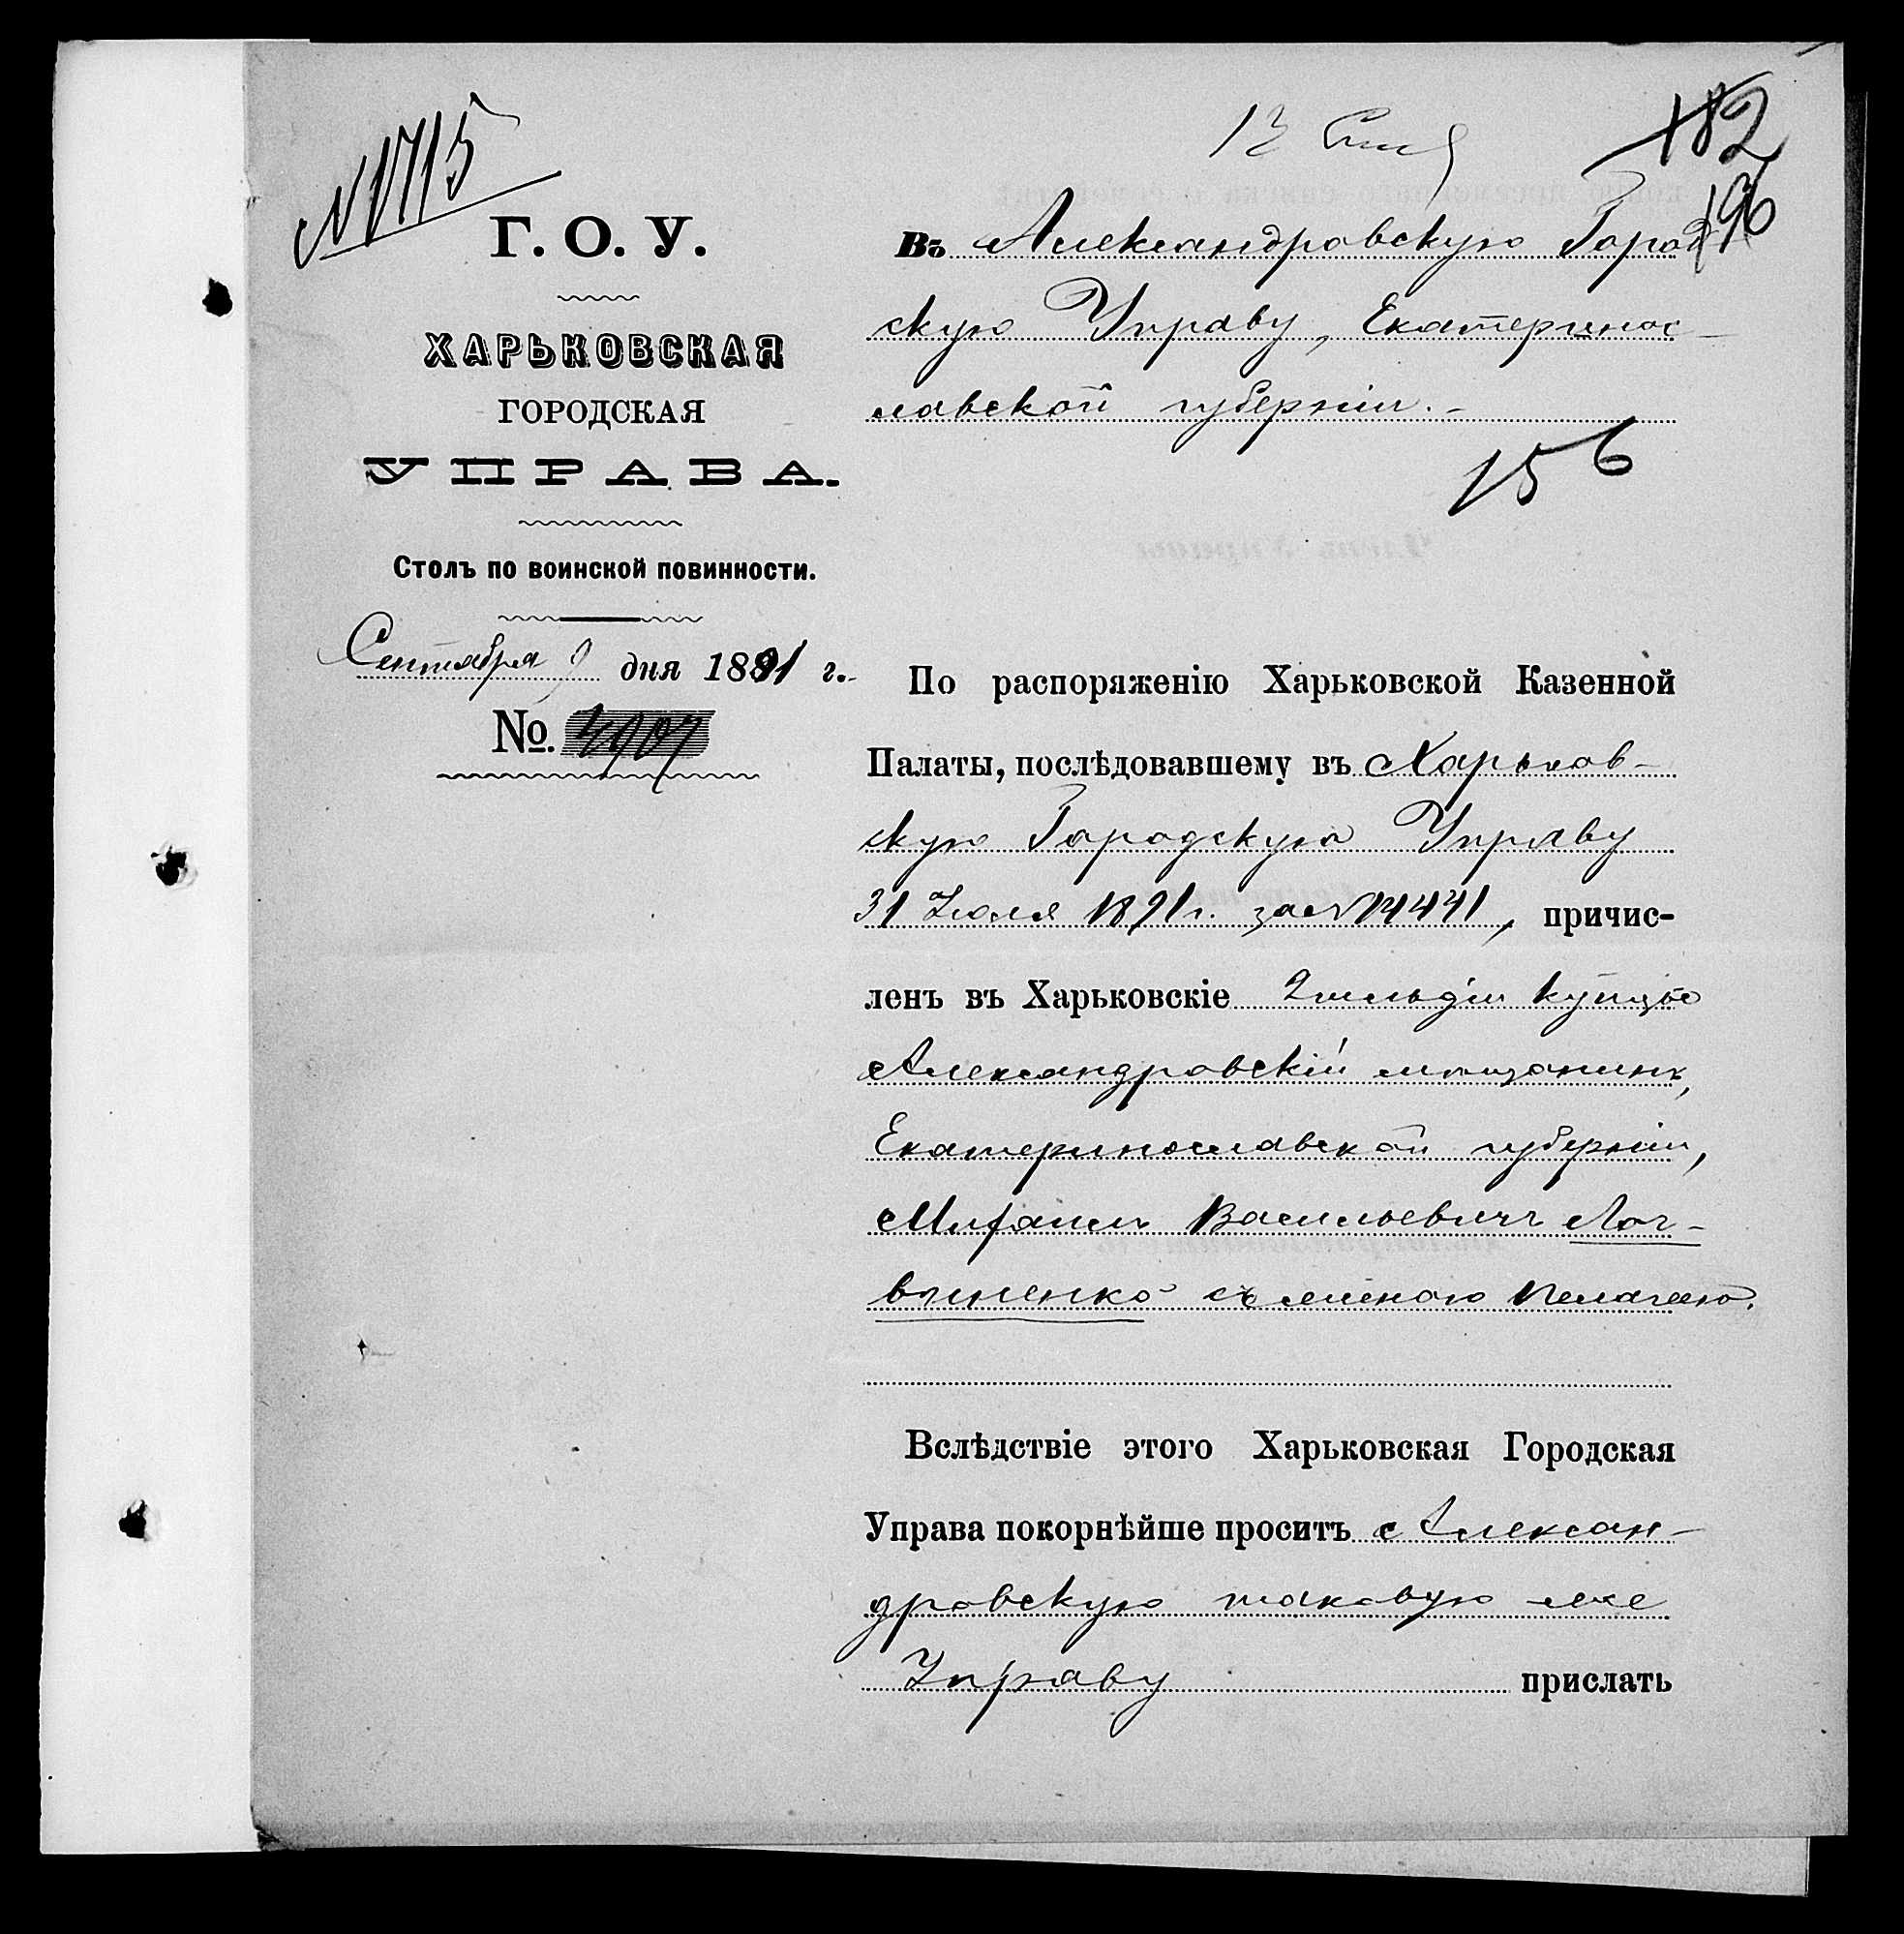 № 1715
182
196
Г. О. У.
ХАРЬКОВСКАЯ
ГОРОДСКАЯ
УПРАВА.
Столъ по воинской повинности.
Сентября 9 дня 1891 г.
No. 4907
Въ Александровскую Город
скую Управу, Екатеринос-
лавской губерніи.-
156
По распоряженію Харьковской Казенной
Палаты, послѣдовавшему въ Харьков-
скую Городскую Управу
31 Іюля 1891 г. за № 14441, причис-
ленъ въ Харьковскіе 2 гильдіи купцы
Александровскій мѣщанинъ,
Екатеринославской губерніи,
Митрофанъ Васильевичъ Лог-
виненко съ женою Пелагеею.
Вслѣдствіе этого Харьковская Городская
Управа покорнѣйше проситъ Алексан-
дровскую таковую же
Управу прислать